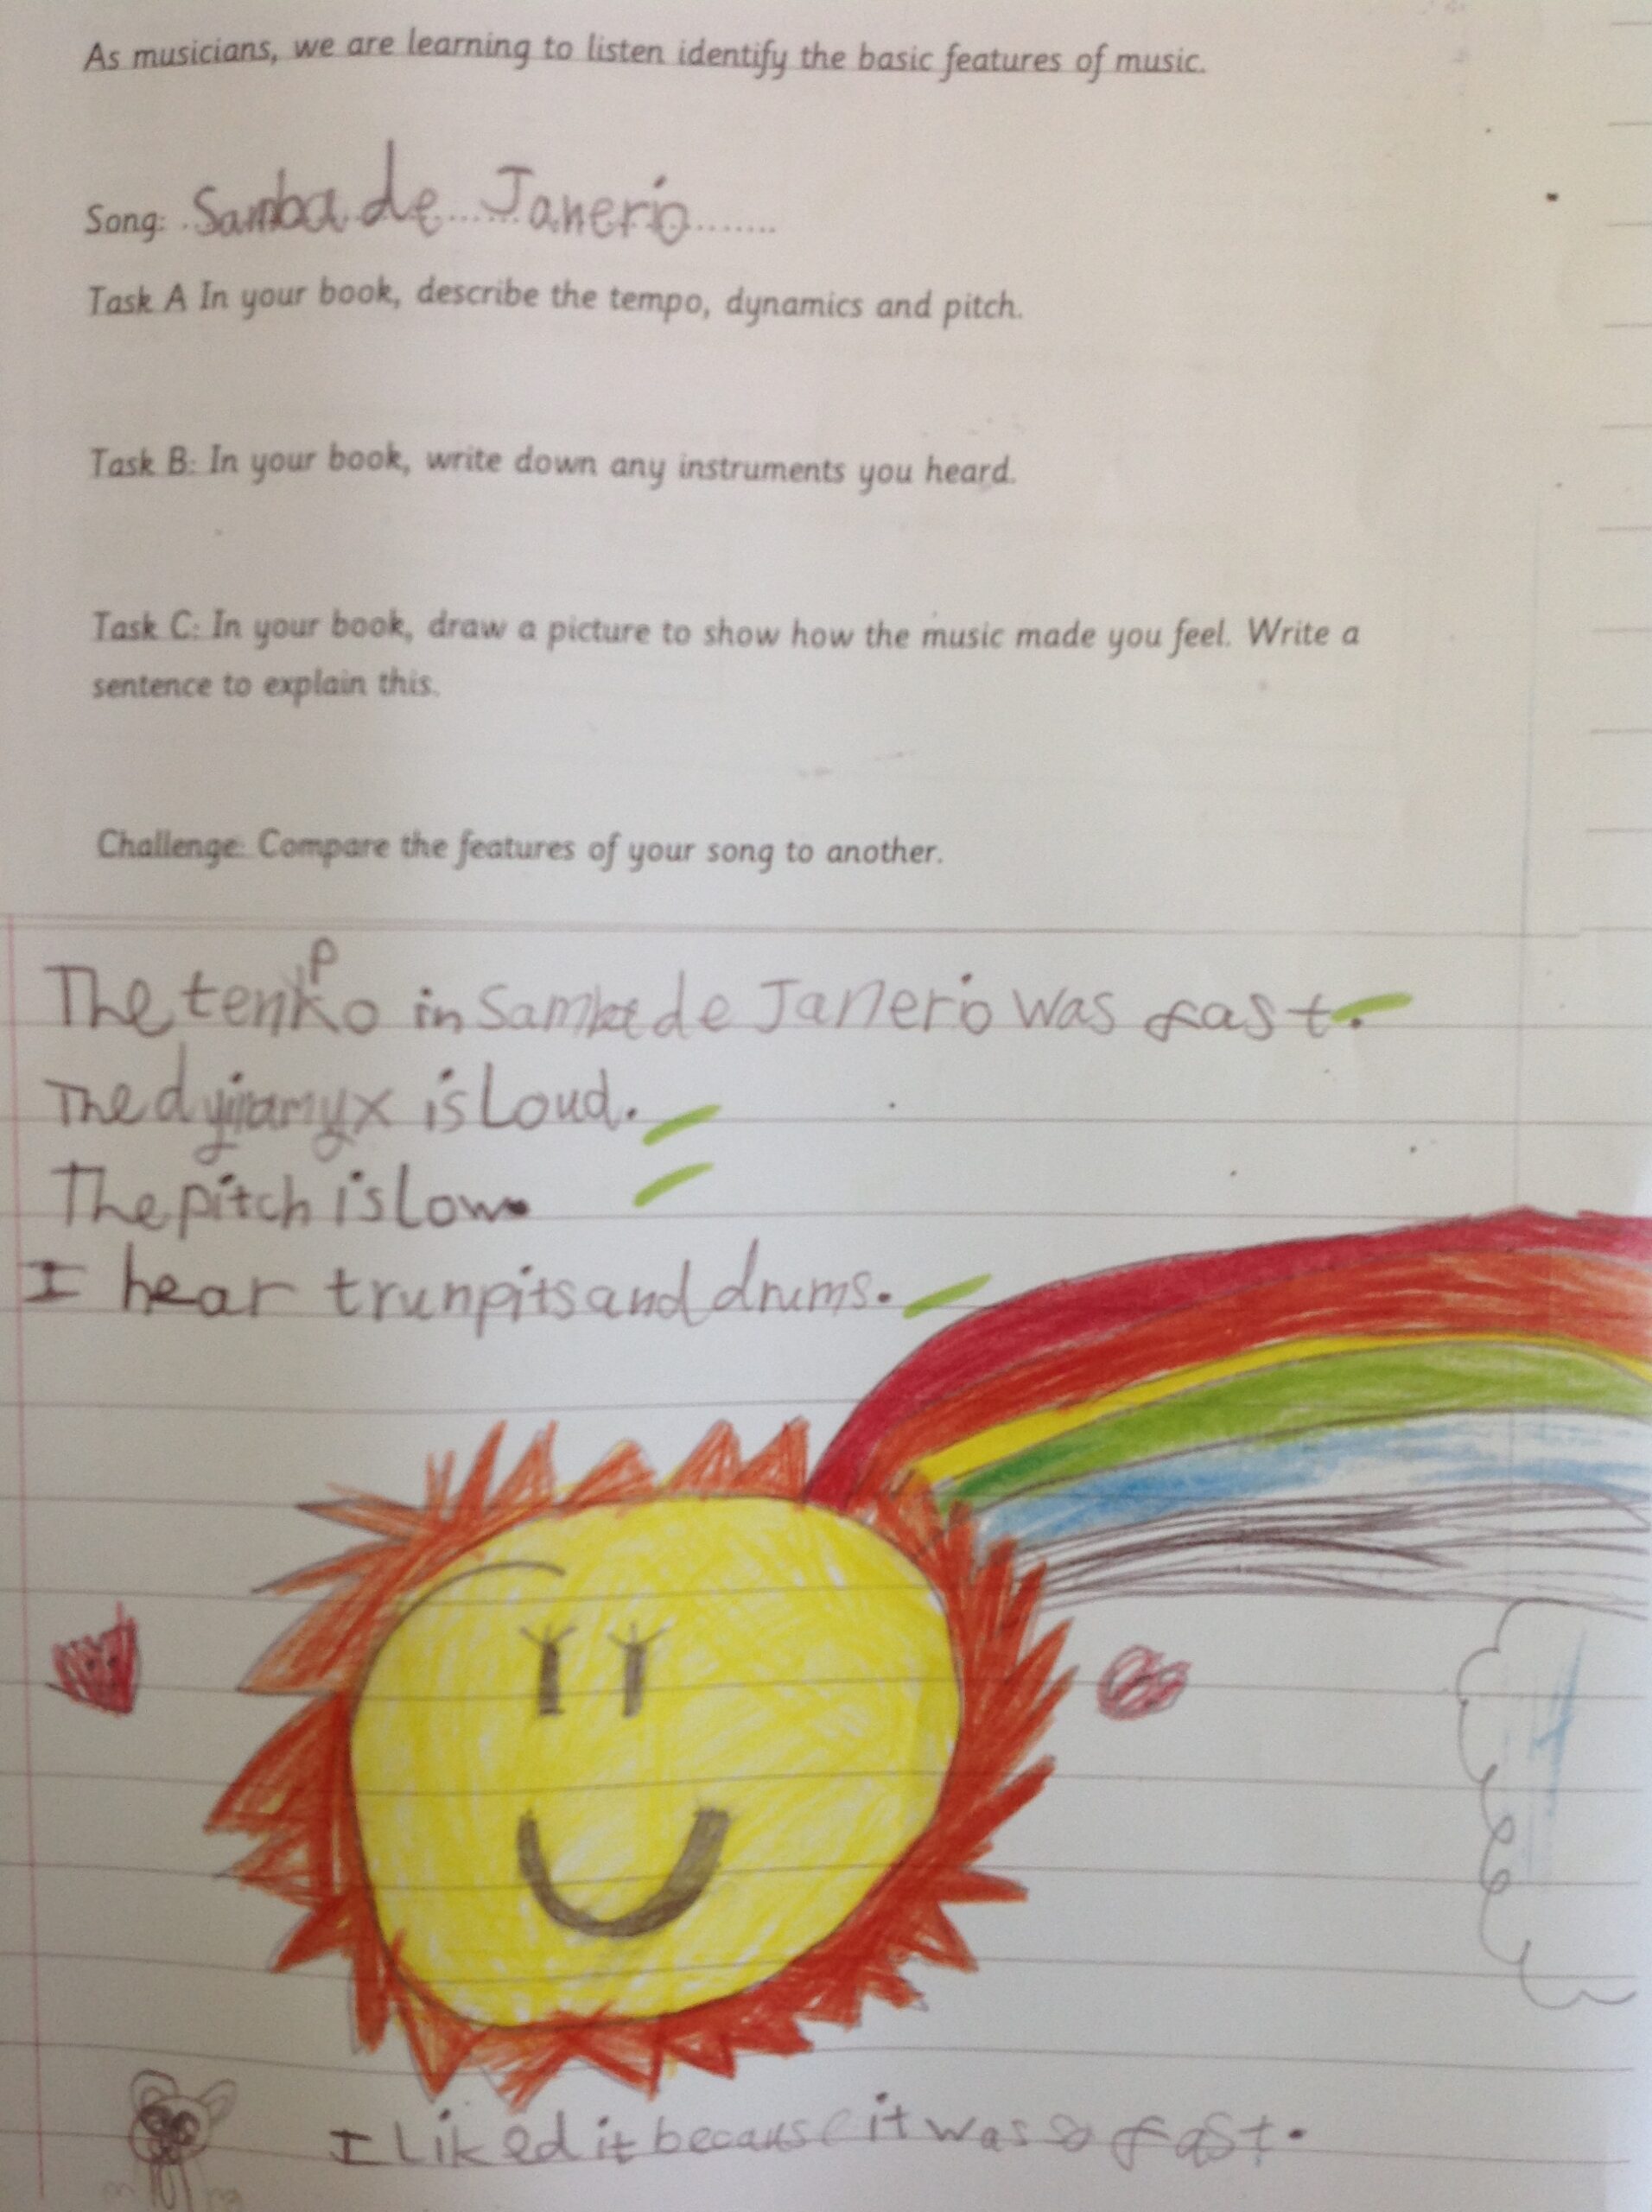 As musicians, we are learning to listen identify the basic features of music.
Song: Samba de Janerio
Task A In your book, describe the tempo, dynamics and pitch.
Task B: In your book, write down any instruments you heard.
Task C: In your book, draw a picture to show how the music made you feel. Write a
sentence to explain this.
Challenge: Compare the features of your song to another.
The tenpo in Samba de Janerio was fast.
The dynamyx is loud.
The pitch is low.
I hear trunpits and drums.
I liked it because it was so fast.